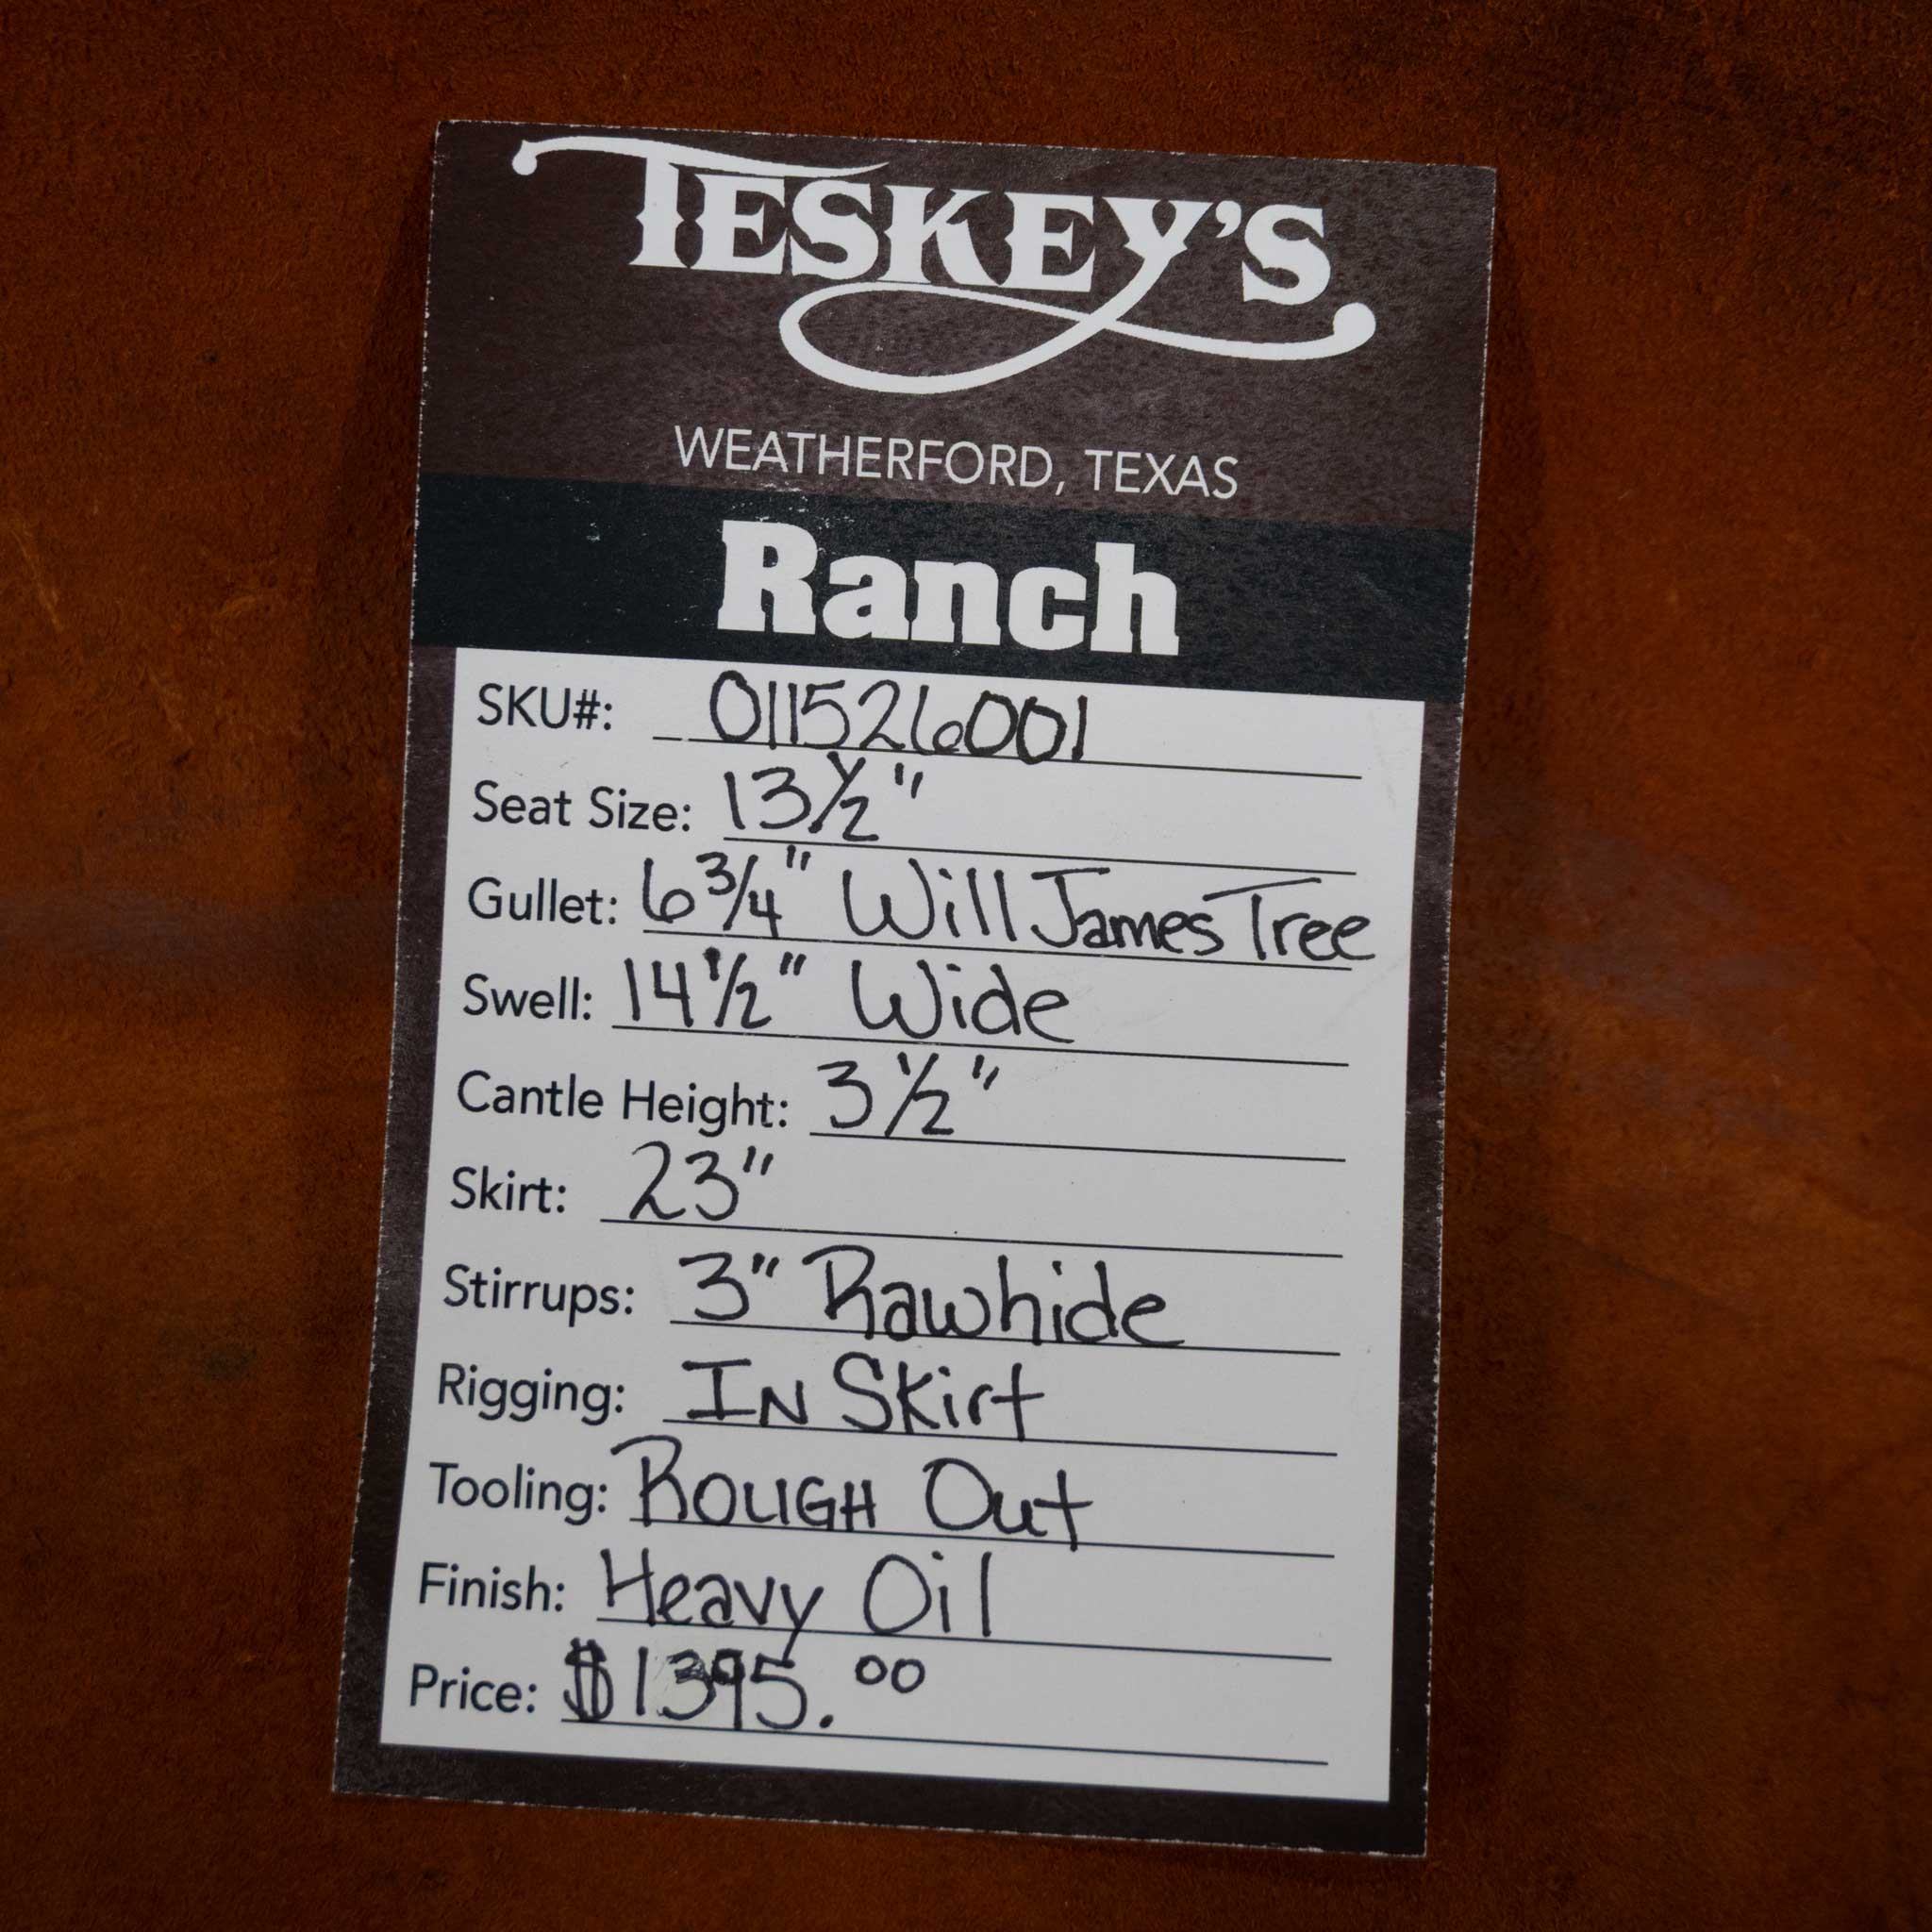 TESKEY'S
WEATHERFORD, TEXAS
Ranch
SKU#: 011526001
Seat Size: 13 1/2"
Gullet: 6 3/4" Will James Tree
Swell: 14 1/2" Wide
Cantle Height: 3 1/2"
Skirt: 23"
Stirrups: 3" Rawhide
Rigging: IN Skirt
Tooling: ROUGH Out
Finish: Heavy Oil
Price: $1395.00